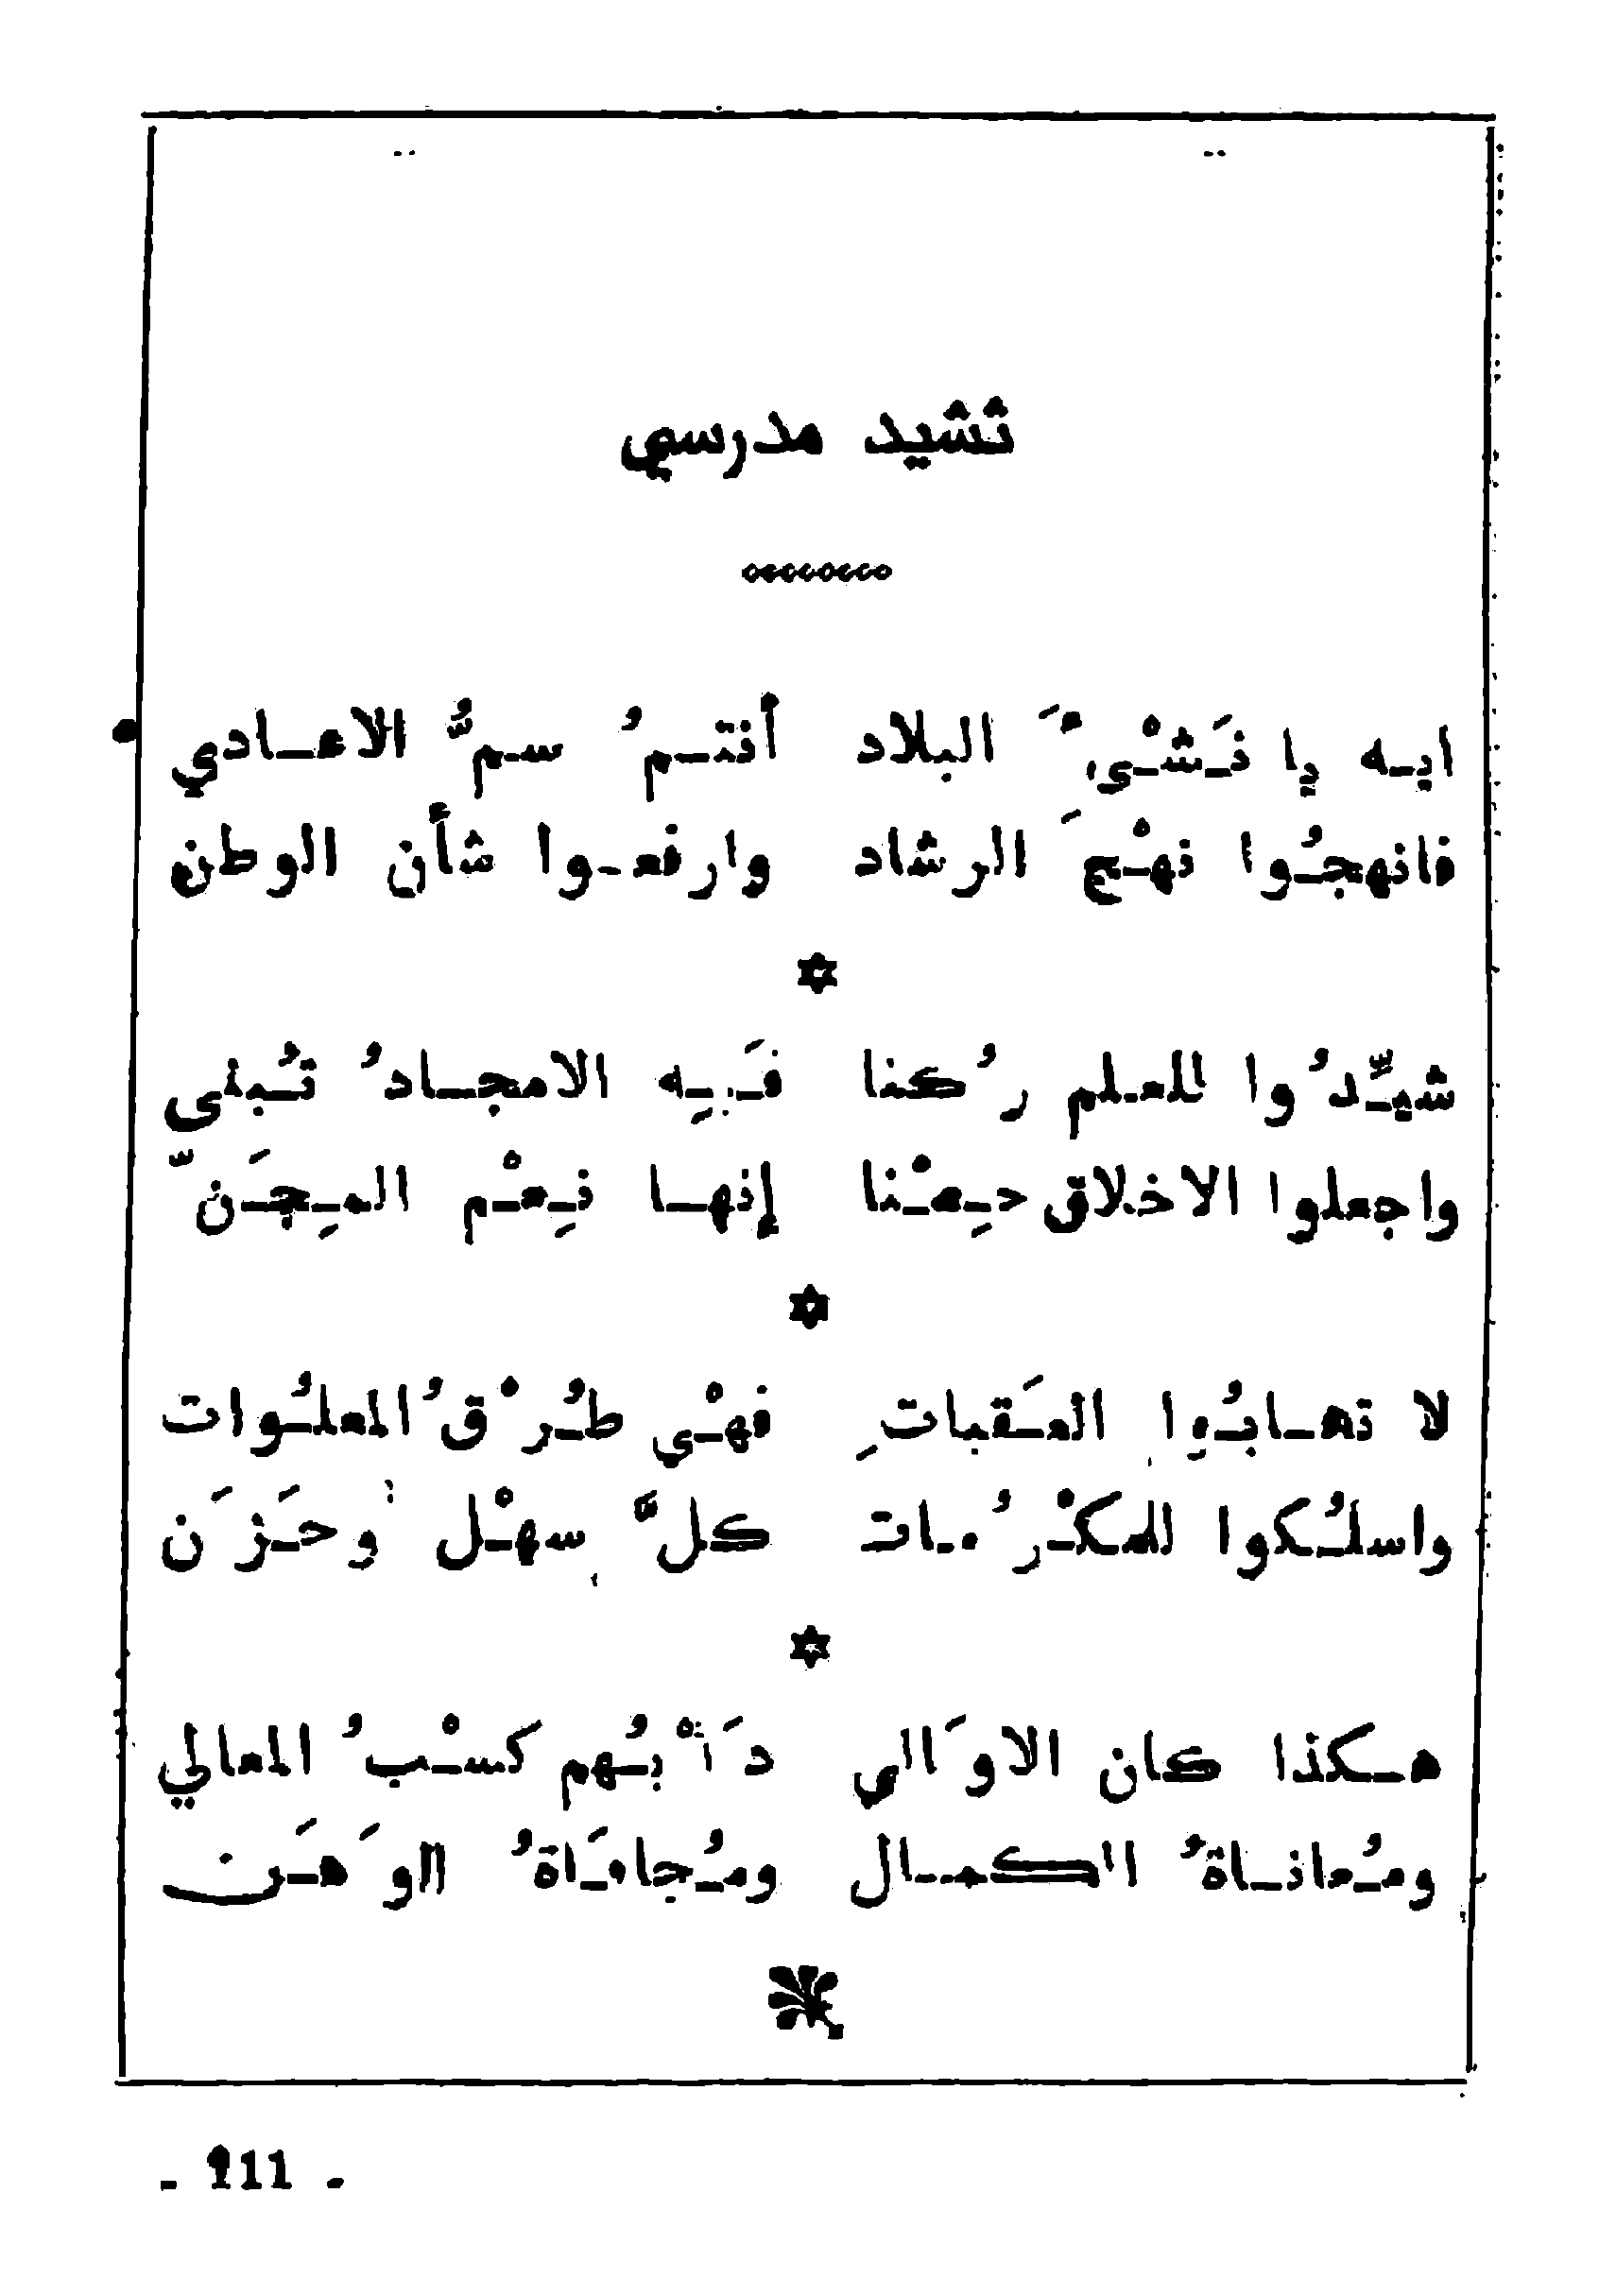 نشيد مدرسي
ايه يا نَشْىءَ البلاد أنتمُ سمُّ الاعادي
فانهجُوا نهْج َ الرشاد وارفعوا شأن الوطن
شيِّدُوا للعلم رُكنا فَبِه الامجادُ تُبنى
واجعلوا الاخلاق حِصْنا إنها نِعْم المِجَنّ
لا تهابُوا العَقباتِ فهْي طُرْقُ المعلُوات
واسلُكوا للمكْرُمات كلَّ سهْل وحَزَن
هكذا كان الاوَالي دَأْبُهم كسْبُ المعالي
ومُعاناةُ الكمال ومُجافَاةُ الوَهَن
- 111 -